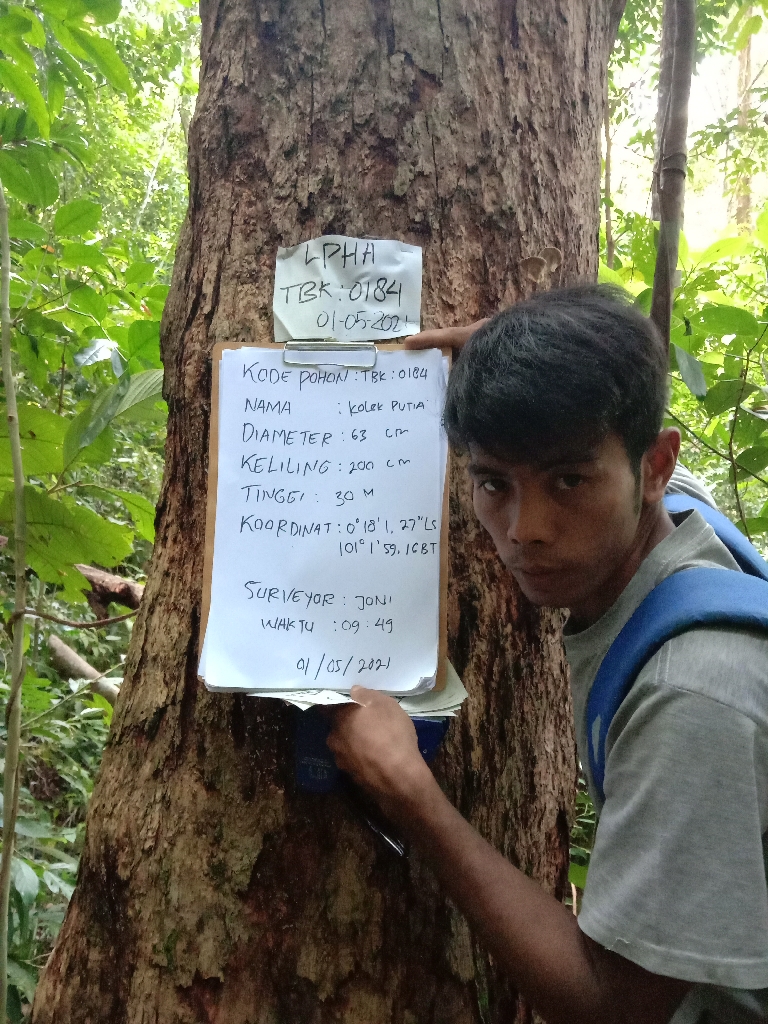 LPHA
TBK: 0184
01-05-2021
KODE POHON : TBK : 0184
NAMA : KOLEK PUTIA
DIAMETER : 63 cm
KELILING : 200 cm
TINGGI : 30 M
KOORDINAT : 0°18'1, 27"LS
101°1'59.16BT
SURVEYOR : JONI
WAKTU : 09:49
01/05/2021